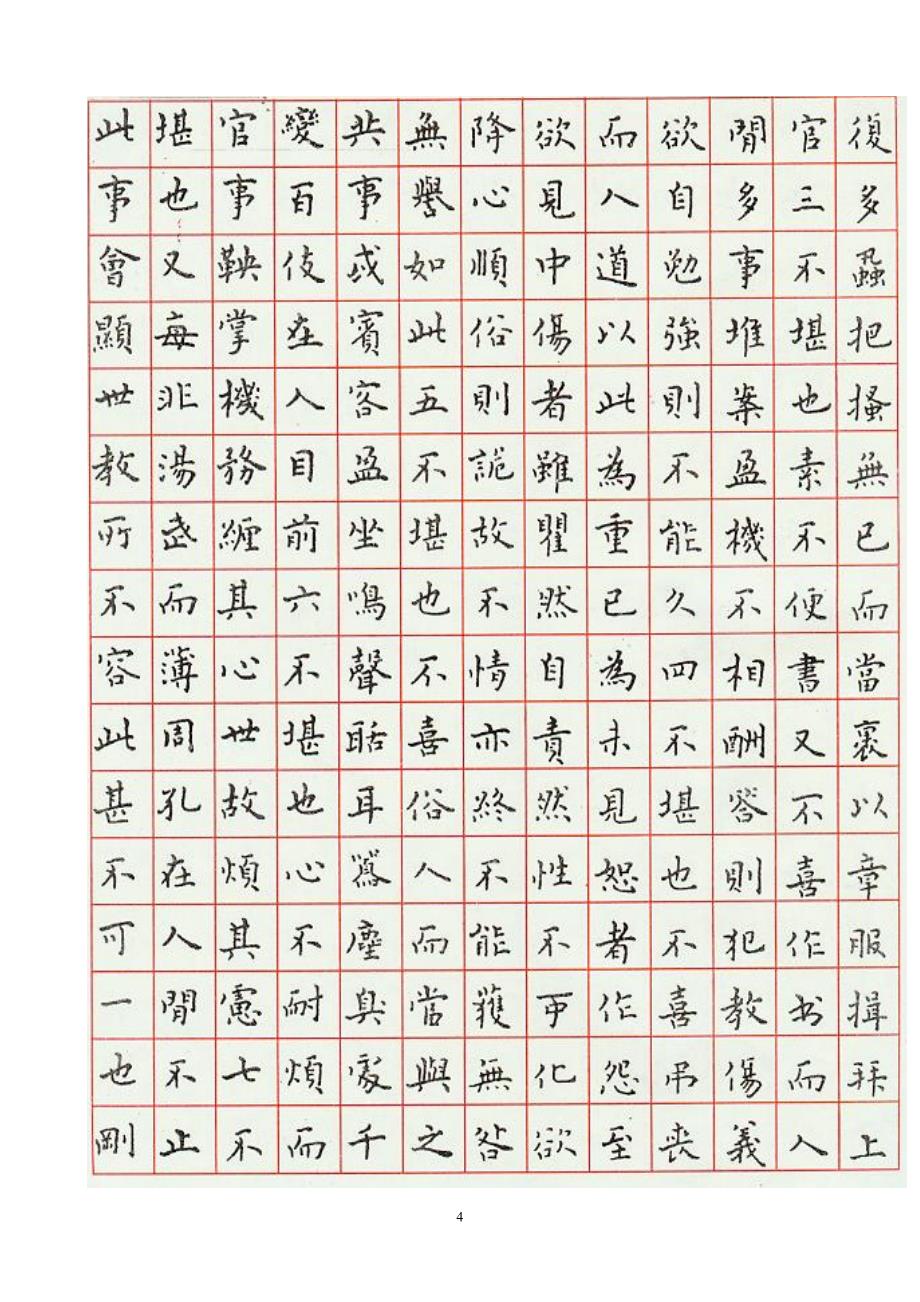 復多蝨把搔無已而當裹以章服揖拜上
官三不堪也素不便書又不喜作书而人
閒多事堆案盈機不相酬答則犯教傷義
欲自勉強則不能久四不堪也不喜吊喪
而人道以此為重已為未見恕者作怨至
欲見中傷者雖瞿然自責然性不可化欲
降心順俗則詭故不情亦終不能獲無咎
無譽如此五不堪也不喜俗人而當與之
共事或賓客盈坐鳴聲聒耳囂塵臭處千
變百伎在人目前六不堪也心不耐煩而
官事鞅掌機務纏其心世故煩其慮七不
堪也又每非湯武而薄周孔在人閒不止
此事會顯世教所不容此甚不可一也剛
4